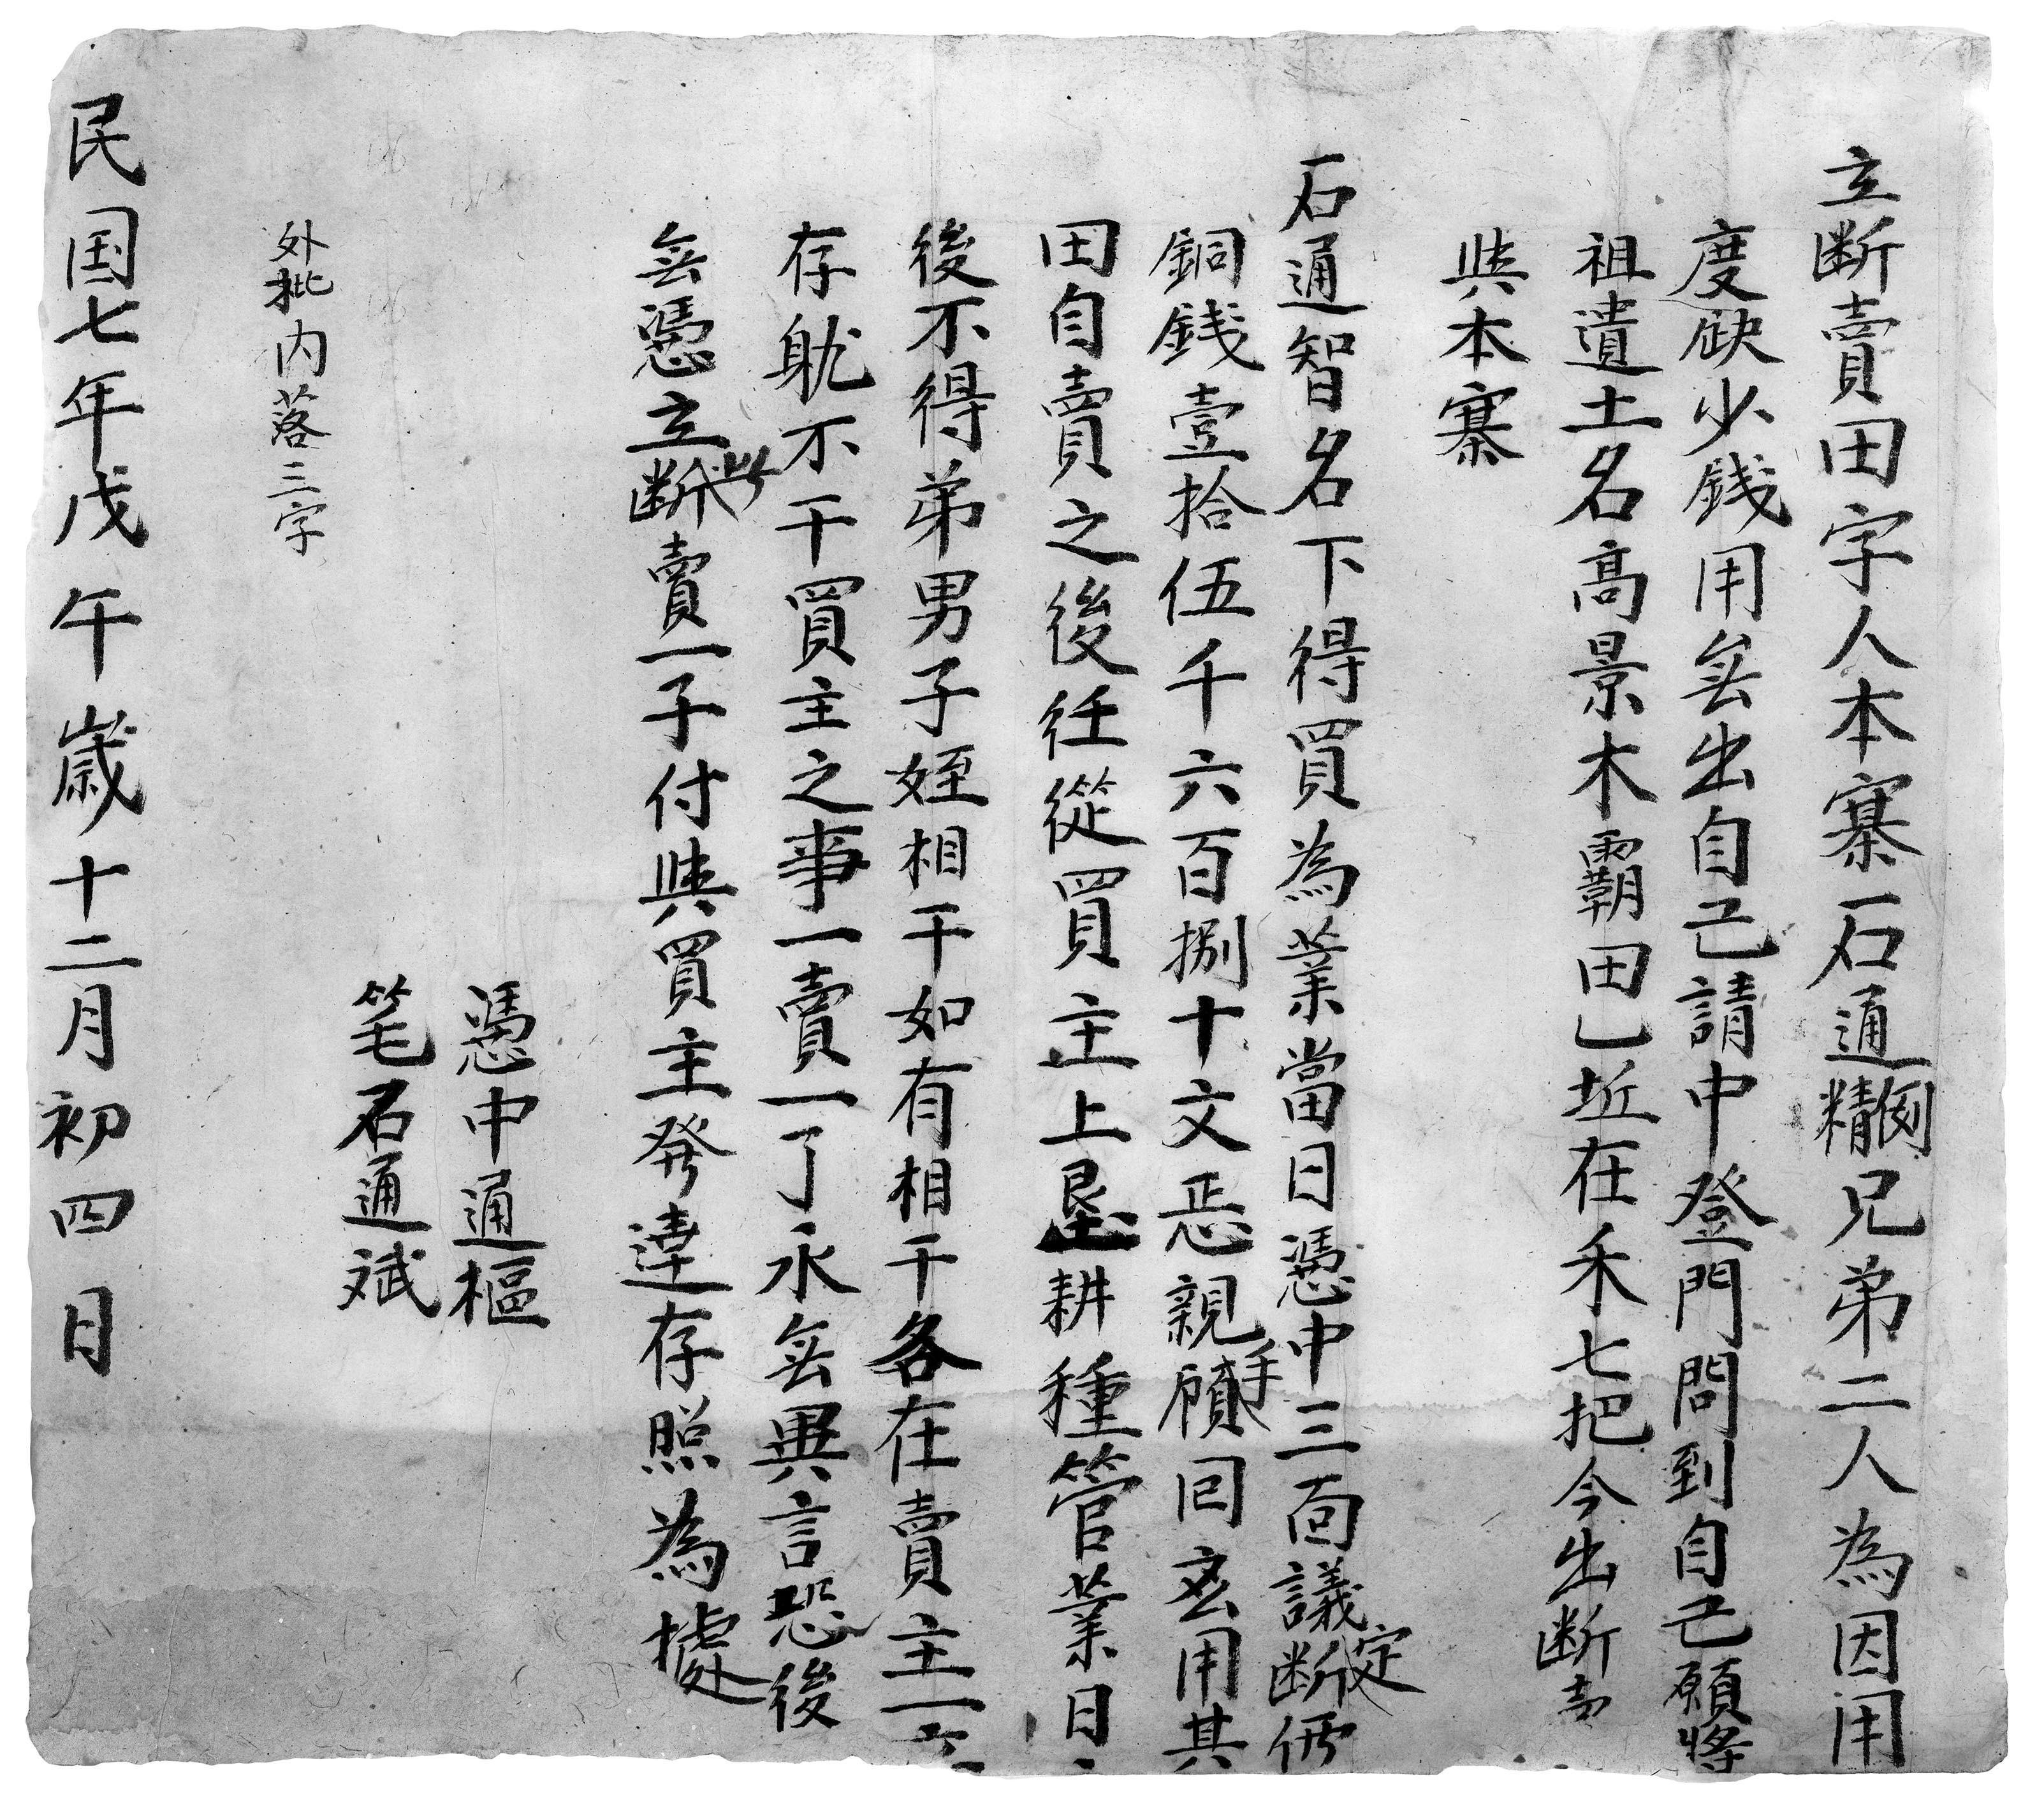 立断賣田字人本寨石通精例兄弟二人為因用
度缺少銭用無出自己請中登門問到自己願將
祖遺土名高景木霸田乚坵在禾七把今出断賣
與本寨
石通智名下得買為業當日憑中三面議定断價
銅銭壹拾伍千六百捌十文恁親手領回家用其
田自賣之後任從買主上墾耕種管業日
後不得弟男子姪相干如有相干各在賣主一
存躭不干買主之事一賣一了永無異言恐後
無憑立此断賣一子付與買主發達存照為據
憑中通樞
笔石通斌
外批内落三字
民国七年戊午歲十二月初四日